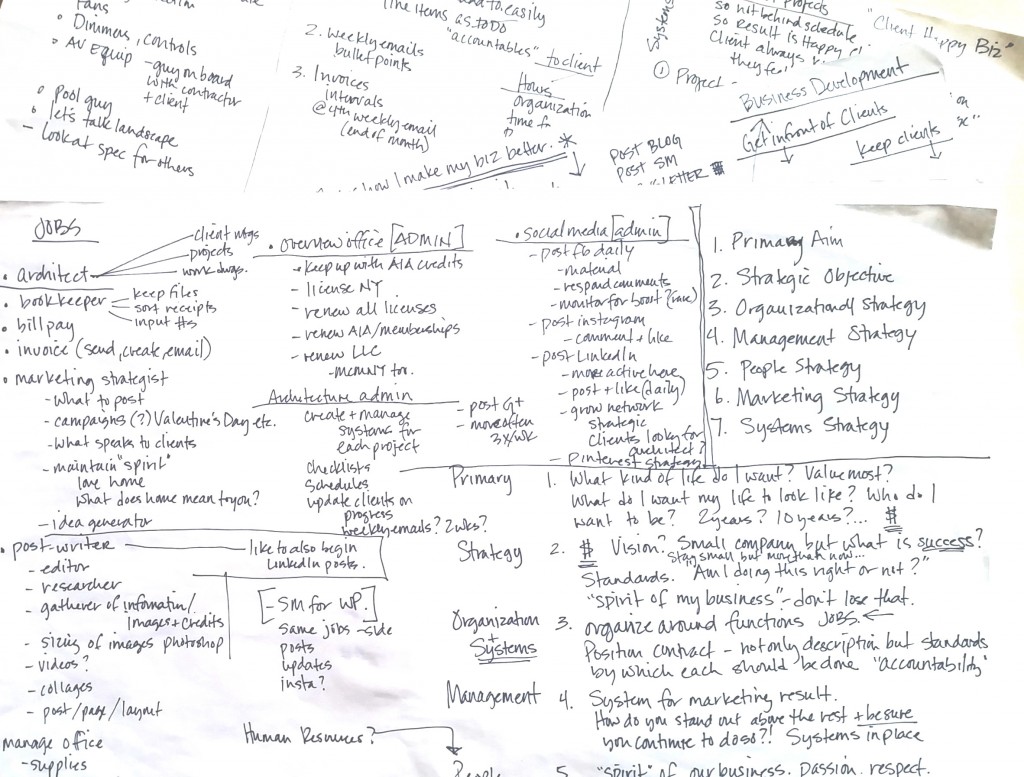 Fans
Dimmers, controls
AV Equip - guy on board
with contractor
+ client
pool guy
let's talk landscape
- Look at spec for others
and to easily
the items as to DO
"accountables" to client
2. weekly emails
bullet points
3. Invoices
intervals
@ 4th weekly email
(end of month)
Hours
organization
time for
how I make my biz better. *
Systems
projects
so not behind schedule
so result is Happy
Client always
they feel
① Project -
"Client Happy Biz"
Business Development
Get in front of Clients
keep clients
POST BLOG
POST SM
LETTER
JOBS
• architect
client mtgs
projects
work dwgs.
• bookkeeper
keep files
sort receipts
input #s
• bill pay
• invoice (send, create, email)
• marketing strategist
- what to post
- campaigns (?) Valentine's Day etc.
- what speaks to clients
- maintain "spirit"
love home
what does home mean to you?
- idea generator
• post-writer
- editor
- researcher
- gatherer of information/
Images + credits
- sizing of images photoshop
- videos?
- collages
- post/page/layout
manage office
- supplies
like to also begin
LinkedIn posts.
[- SM for WP.]
same jobs - side
posts
updates
insta?
Human Resources?
People
• overview office [ADMIN]
- keep up with AIA credits
- license NY
- renew all licenses
- renew AIA/memberships
- renew LLC
Architecture admin
create + manage
systems for
each project
checklists
schedules
update clients on
progress
weekly emails? 2wks?
• social media [admin]
- post fb daily
- material
- respond comments
- monitor for boost? (rare)
- post instagram
- comment + like
- post LinkedIn
- more active here
- post + like (daily)
- grow network
strategic
clients looking for
architect?
- Pinterest strategy
- post G+
- more often
3x/wk
1. Primary Aim
2. Strategic Objective
3. Organizational Strategy
4. Management Strategy
5. People Strategy
6. Marketing Strategy
7. Systems Strategy
Primary 1. What kind of life do I want? Value most?
What do I want my life to look like? Who do I
want to be? 2 years? 10 years?... $
Strategy 2. $ Vision? Small company but what is success?
stay small but more than now...
Standards. "Am I doing this right or not?"
"spirit of my business" - don't lose that.
Organization + Systems 3. organize around functions JOBS. ←
Position contract - not only description but standards
by which each should be done "accountability"
Management 4. System for marketing result.
How do you stand out above the rest + be sure
you continue to do so?! Systems in place
5. "spirit" of our business. Passion. respect.